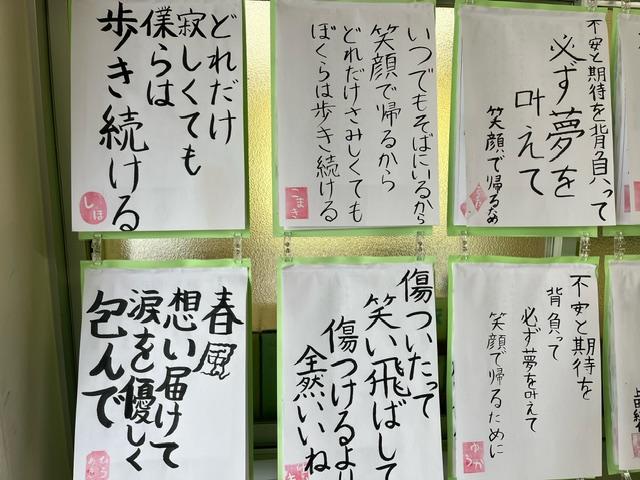 どれだけ
寂しくても
僕らは
歩き続ける
しほ
いつでもそばにいるから
笑顔で帰るから
どれだけさみしくても
ぼくらは歩き続ける
こまき
不安と期待を背負って
必ず夢を
叶えて
笑顔で帰るな
春風
想い届けて
涙を優しく
包んで
傷ついたって
笑い飛ばして
傷つけるより
全然いいね
不安と期待を
背負って
必ず夢を叶えて
笑顔で帰るために
ゆうか